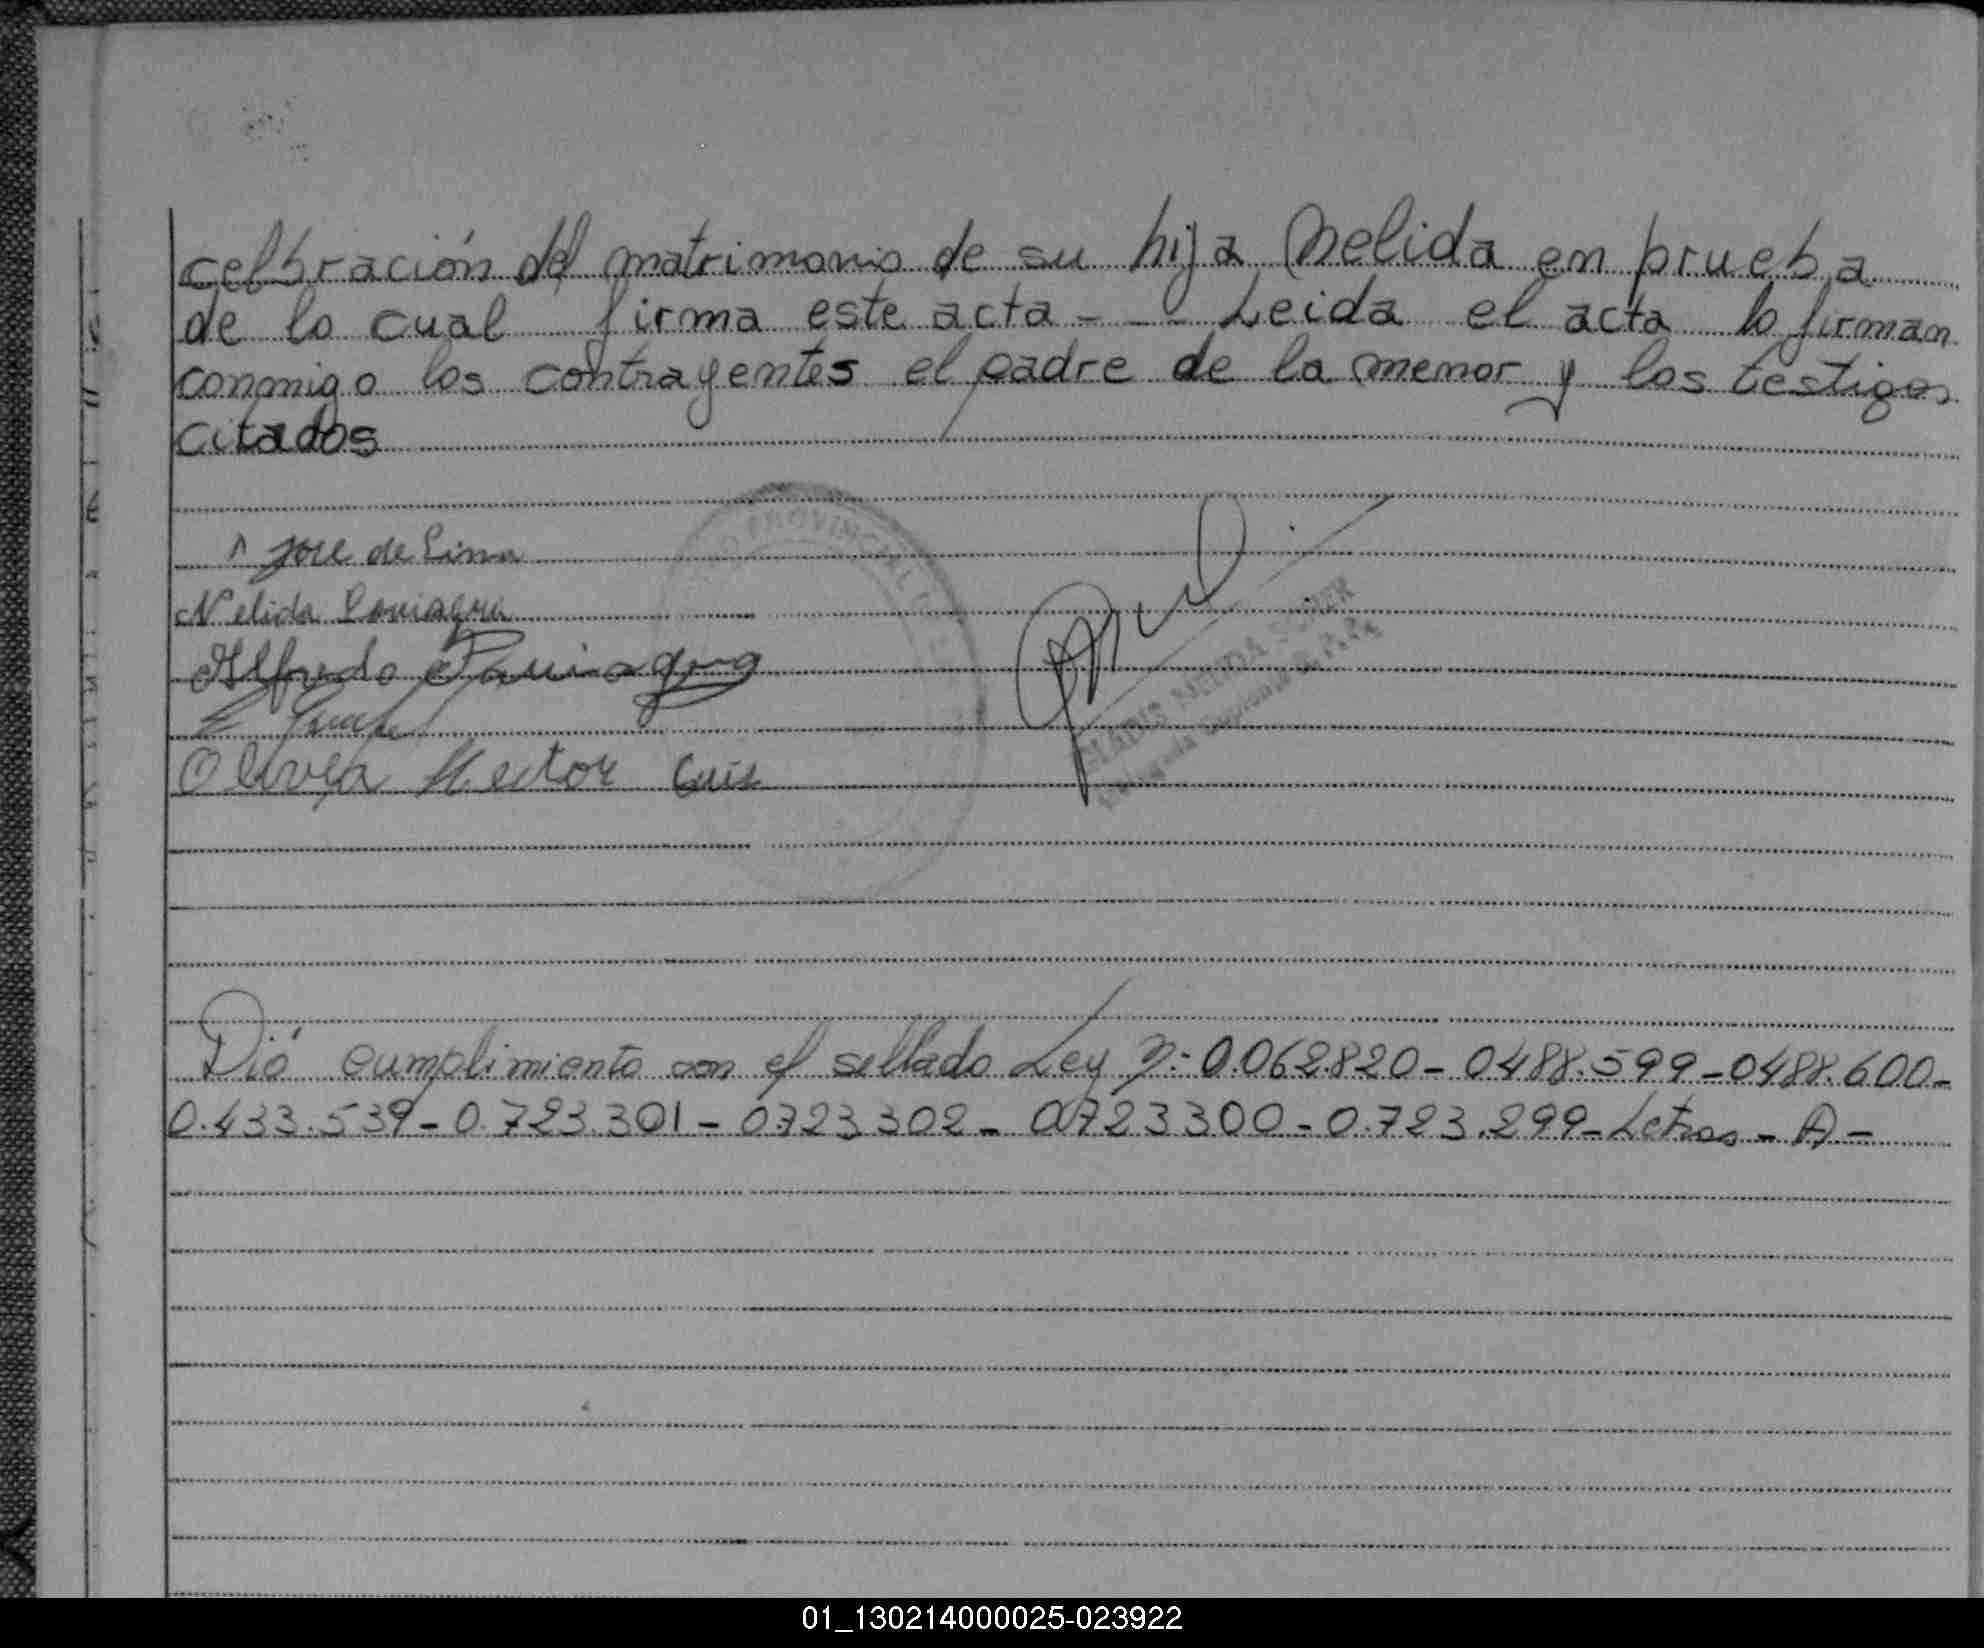 celbración del matrimonio de su hija Nelida en prueba
de lo cual firma este acta - - - Leida el acta lo firman
conmigo los contrayentes el padre de la menor y los testigos
citados
Jose de Lima
Nelida Paniagua
Alfredo Paniagua
Olivera Hector Luis
PROVINCIAL
GLADIS NELIDA
Delegada Suplente
Dió cumplimiento con el sellado Ley n: 0.062.820 - 0488.599 - 0488.600 -
0.433.539 - 0.723.301 - 0723302 - 0723300 - 0.723.299 - Letras - A -
01_130214000025-023922